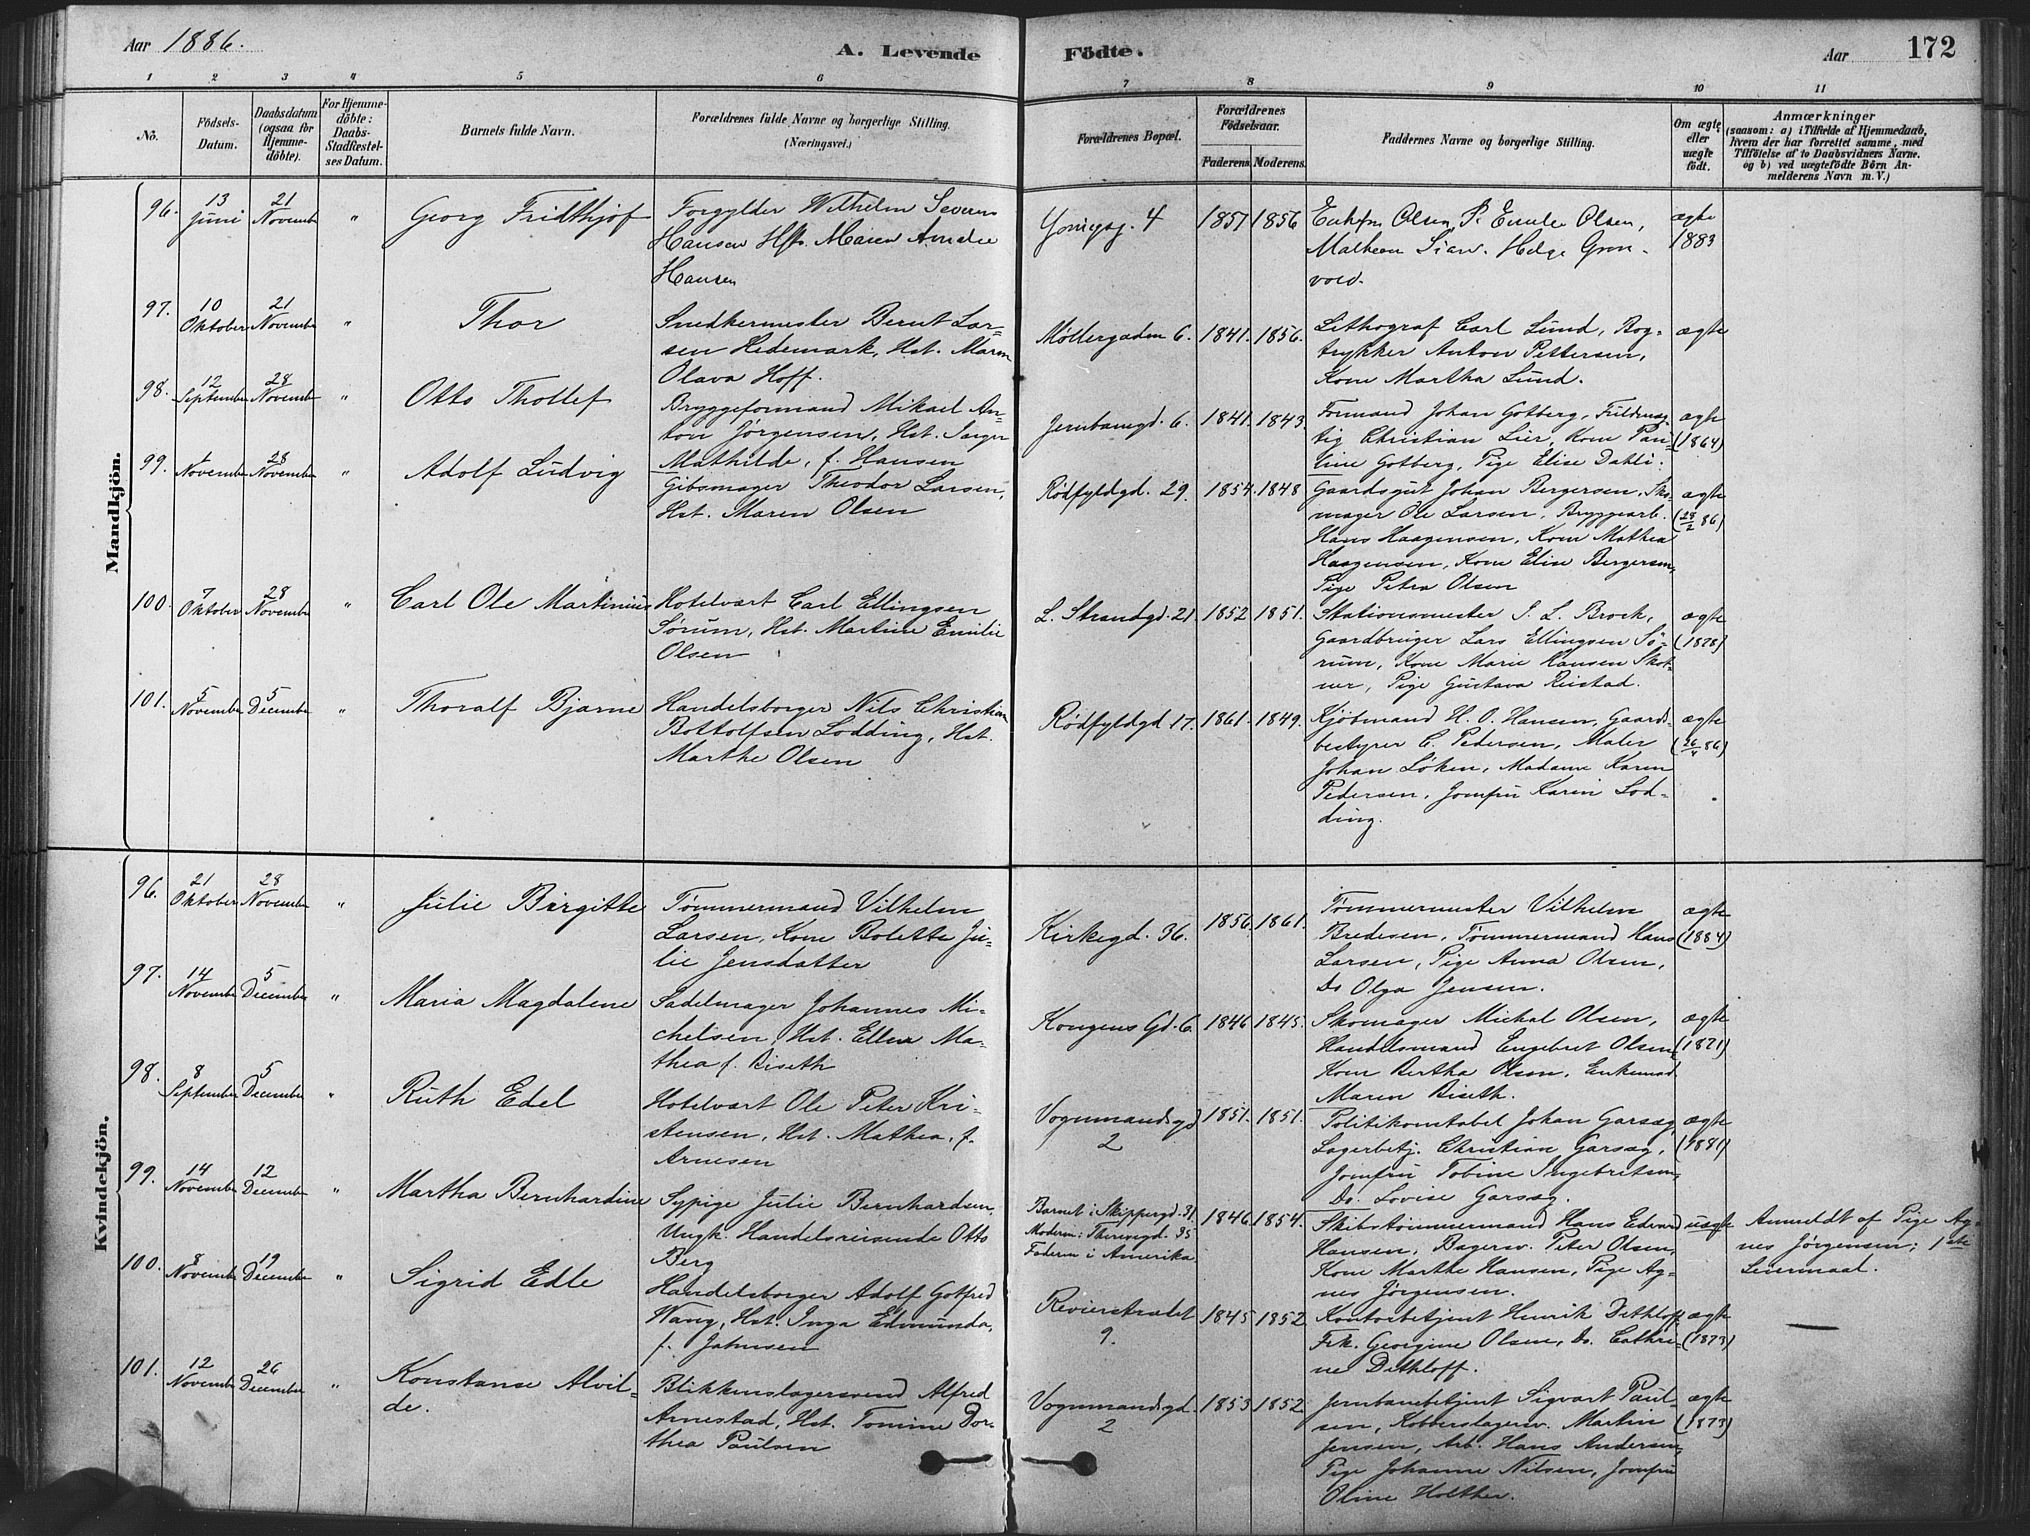 Aar 1886.
A. Levende
Födte.
Aar
172
1 2 3 4 5 6 7 8 9 10 11
No.
Födsels-
Datum.
Daabsdatum
(ogsaa for
Hjemme-
döbte).
For Hjemme-
döbte:
Daabs-
Stadfæstel-
ses Datum.
Barnets fulde Navn.
Forældrenes fulde Navne og borgerlige Stilling.
(Næringsvei.)
Forældrenes Bopæl.
Forældrenes
Födselsaar.
Faderens. Moderens.
Faddernes Navne og borgerlige Stilling.
Om ægte
eller
uægte
födt.
Anmærkninger
(saasom: a) i Tilfælde af Hjemmedaab,
hvem der har forrettet samme, med
Tilföielse af to Daabsvidners Navne.
og b) ved uægtefödte Börn An-
melderens Navn m. V.)
Mandkjön.
96. 13 Juni 21 November " Georg Fridthjof
Forgylder Wilhelm Severin
Hansen Hst. Maren Amalie
Hansen
4 1857 1856
Olsen, Emile Olsen,
Helge Grøn-
vold.
ægte
1883
97. 10 Oktober 21 November " Thor
Snedkermester Bernt Lar-
sen Hedemark, Hst. Maren
Olava Hoff.
Møllergaden 6. 1841. 1856.
Lithograf Carl Lund, Bog-
trykker Anton Pettersen,
Kone Martha Lund.
ægte
98. 12 September 28 November " Otto Thollef
Bryggeformand Mikael An-
ton Jørgensen, Hst. Inger
Mathilde, f. Hansen
Jernbanegd. 6. 1841. 1843.
Formand Johan Gotberg, Fuldmæg-
tig Christian Lier, Kone Pau-
line Gotberg, Pige Elise Dahli.
ægte
(1864)
99. 1 November 28 November " Adolf Ludvig
Gibsmager Theodor Larsen,
Hst. Maren Olsen
Rødfyldgd. 29. 1854. 1848
Gaardsgut Johan Bergersen, Sko-
mager Ole Larsen, Bryggearb.
Hans Haagensen, Kone Mathea
Haagensen, Kone Elise Bergersen,
Pige Petra Olsen
ægte
(28/2 86)
100. 7 Oktober 28 November " Carl Ole Martinius
Hotelvært Carl Ellingsen
Sørum, Hst. Martine Emilie
Olsen
L. Strandgd. 21. 1852 1851.
Stationsmester J. L. Brock,
Gaardbruger Lars Ellingsen Sö-
rum, Kone Marie Hansen Skot-
ner, Pige Gustava Reistad.
ægte
(1878)
101. 5 November 5 December " Thoralf Bjarne
Handelsborger Nils Christian
Bottolfsen Lodding, Hst.
Marthe Olsen
Rødfyldgd 17. 1861. 1849.
Kjöbmand H. O. Hansen, Gaards-
bestyrer C. Pedersen, Maler
Johan Löken, Madame Karen
Pedersen, Jomfru Karin Lod-
ding.
ægte
(26/4 86)
Kvindekjön.
96. 21 Oktober 28 November " Julie Birgitte
Tømmermand Vilhelm
Larsen, Kone Bolette Ju-
lie Jensdatter
Kirkegd. 36. 1856. 1861.
Tømmermester Vilhelm
Bredesen, Tømmermand Hans
Larsen, Pige Anna Olsen,
Do Olga Jensen.
ægte
(1884)
97. 14 November 5 December " Maria Magdalene
Sadelmager Johannes Mi-
chelsen, Hst. Ellen Ma-
thea f. Biseth
Kongens Gd. 6. 1846 1845.
Skomager Michal Olsen,
Handelsmand Engebret Olsen,
Kone Bertha Olsen, Enkemad.
Maren Biseth.
ægte
(1871)
98. 8 September 5 December " Ruth Edel
Hotelvært Ole Peter Kri-
stensen, Hst. Mathea, f.
Arnesen
Vognmandsgd
2
1851. 1851.
Politikonstabel Johan Garsæg,
Lagerbetj. Christian Garsæg,
Jomfru Tobine Ingebretsen,
Do. Lovise Garsæg.
ægte
(1881)
99. 14 November 12 December " Martha Bernhardine
Sypige Julie Bernhardsen,
Ungk. Handelsreisende Otto
Berg
Barnet i Skippergd. 31.
Moderen i Theresegd. 35
Faderen i Amerika
1846. 1854.
Skibstømmermand Hans Edvard
Hansen, Bagersv. Peter Olsen,
Kone Marthe Hansen, Pige Ag-
nes Jörgensen.
uægte
Anmeldt af Pige Ag-
nes Jørgensen; 1ste
Leiermaal.
100. 8 November 19 December " Sigrid Edle
Handelsborger Adolf Gotfred
Wang, Hst. Inga Edmunda,
f. Johnsen
Revierstrædet
9.
1845 1852
Kontorbetjent Henrik Dethloff,
Frk. Georgine Olsen, Do. Cathri-
ne Dethloff.
ægte
(1873)
101. 12 November 26 December " Konstanse Alvil-
de.
Blikkenslagersvend Alfred
Arnestad, Hst. Tomine Dor-
thea Paulsen
Vognmandsgd.
2
1853 1852
Jernbanebetjent Sigvart Paul-
sen, Kobberslagersv. Martin
Jensen, Arb. Hans Andersen,
Pige Johanne Nilsen, Jomfru
Oline Holther.
ægte
(1873)